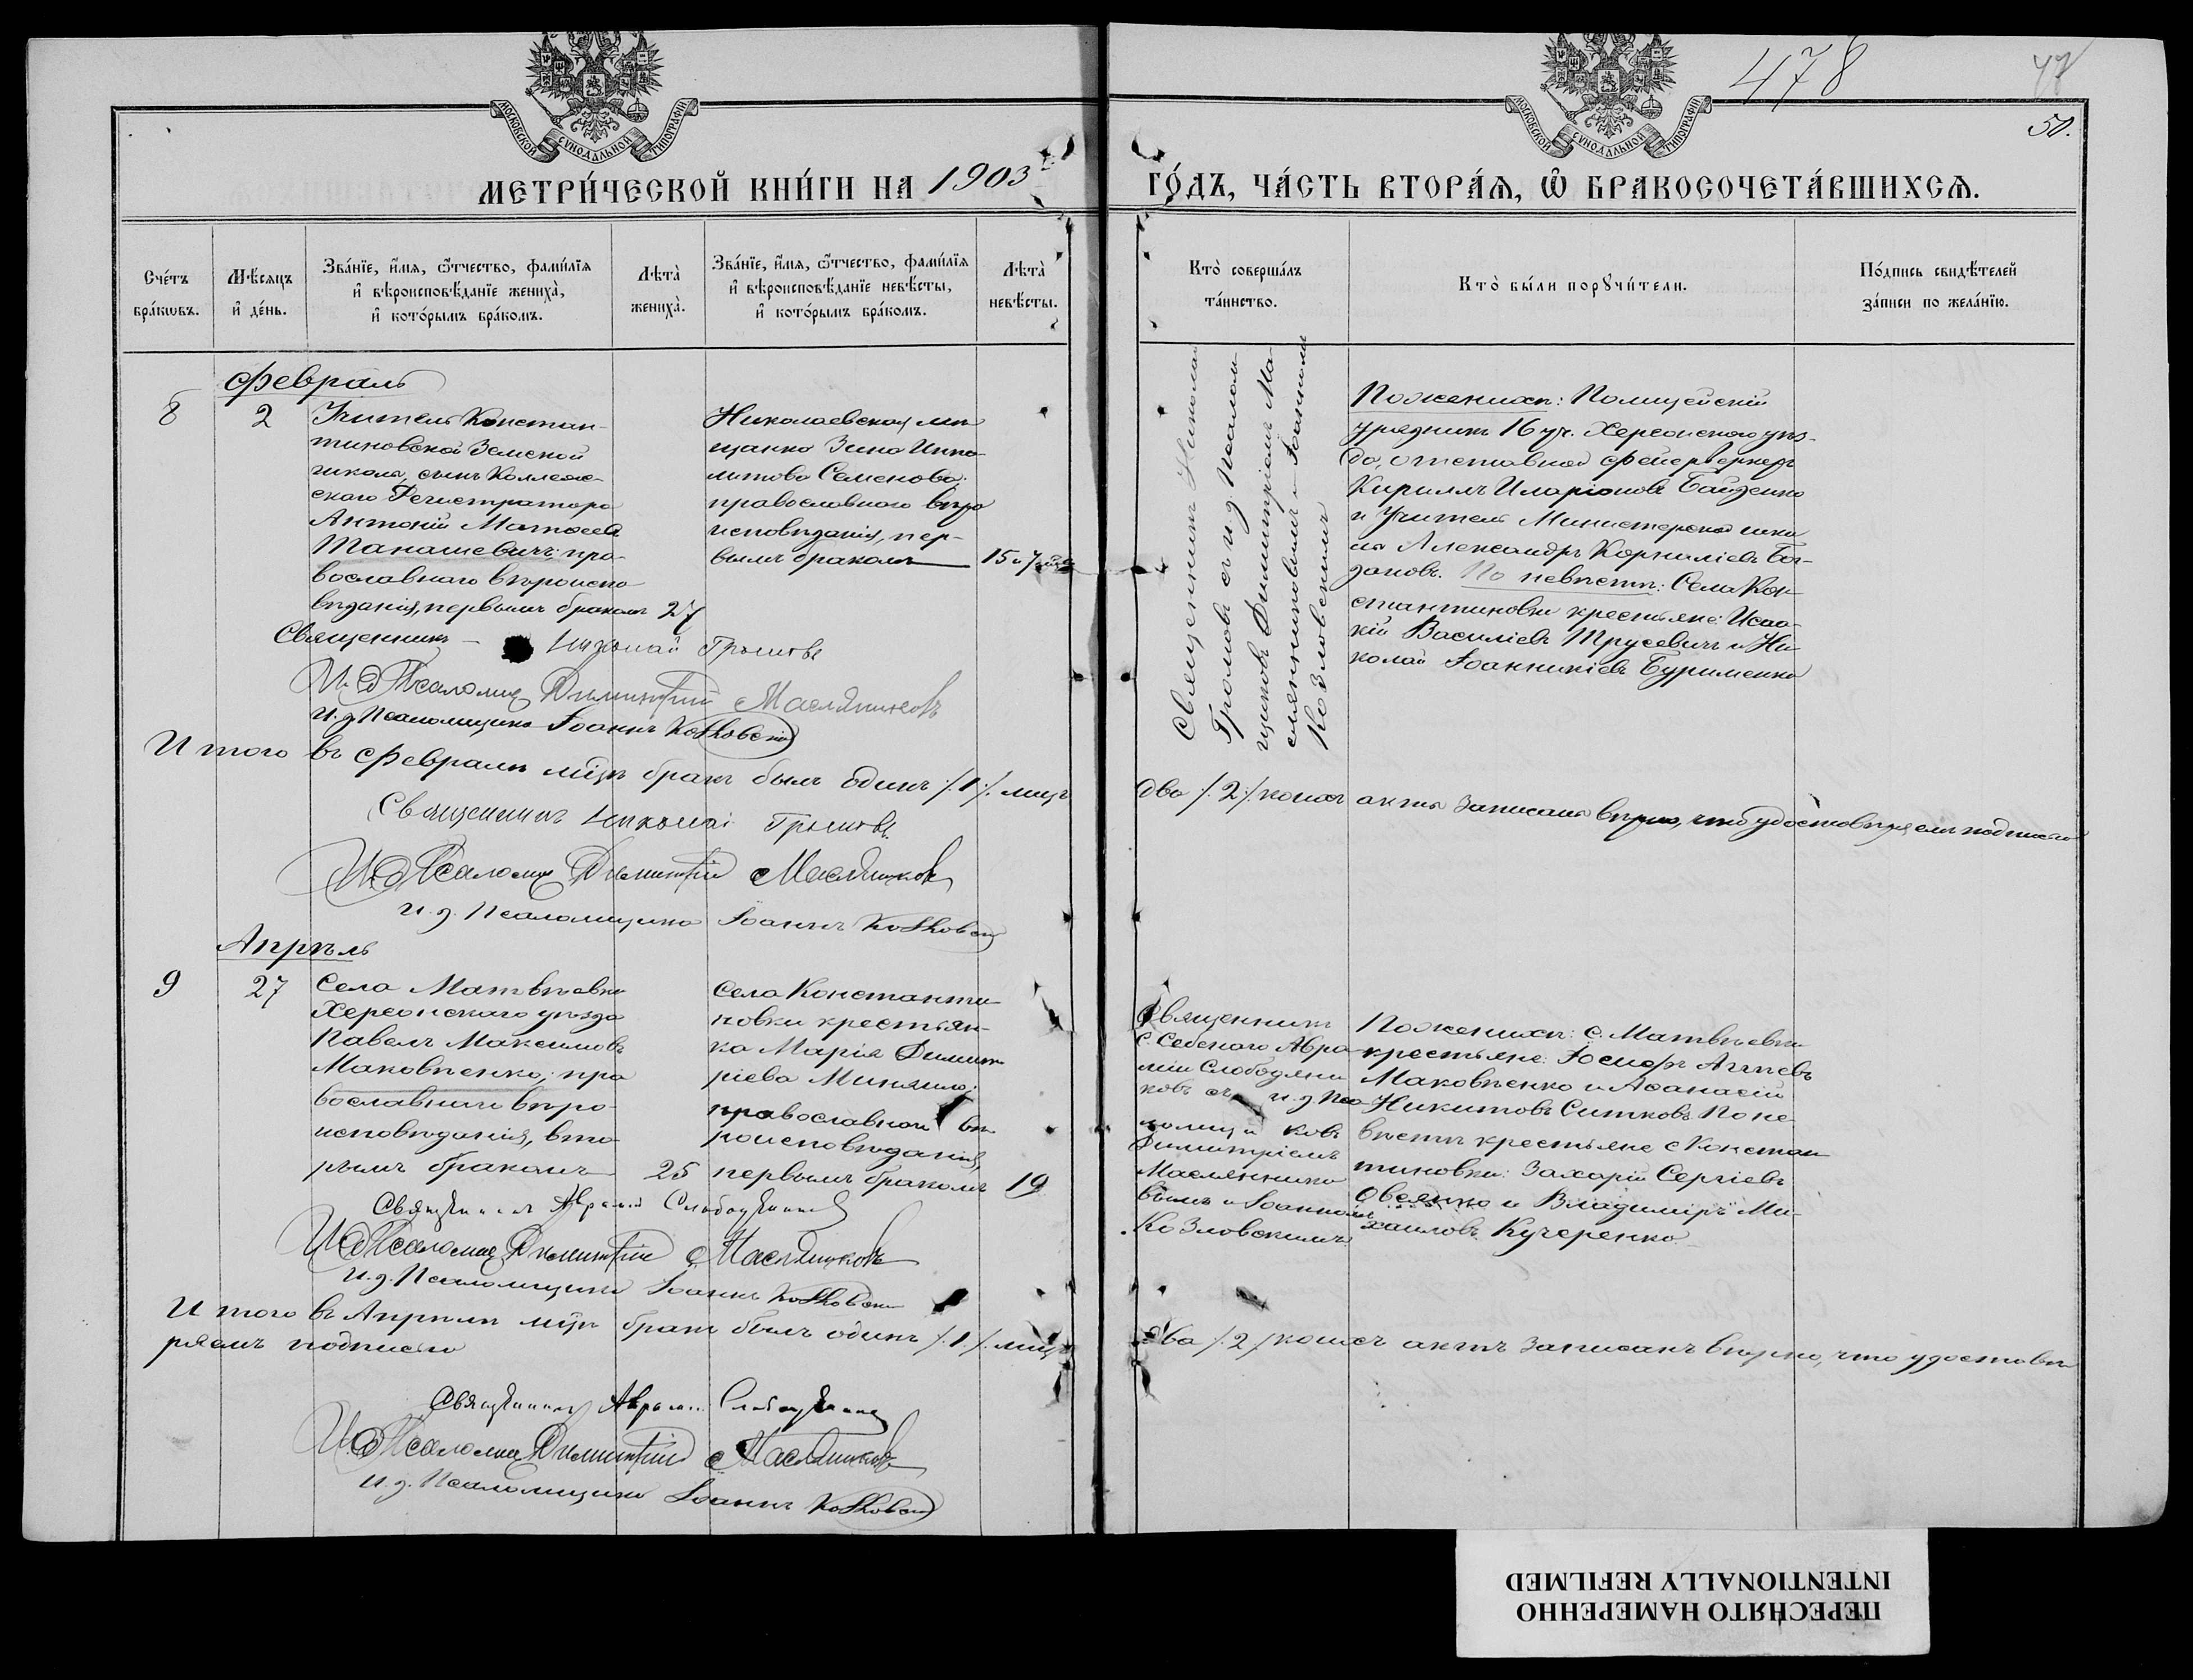 478
47
50.
МОСКОВСКОЙ СѴНОДАЛЬНОЙ ТИПОГРАФІИ
МОСКОВСКОЙ СѴНОДАЛЬНОЙ ТИПОГРАФІИ
МЕТРИ́ЧЕСКОЙ КНИ́ГИ НА 1903
ГО́ДЪ, ЧА́СТЬ ВТОРА́Ѧ, Ѡ҆ БРАКОСОЧЕТА́ВШИХСѦ.
Сче́тъ бра́кѡвъ.
Мѣ́сяцъ и҆ де́нь.
Зва́нїе, и҆́мѧ, ѻ҆́тчество, фамѝлїѧ
и҆ вѣроисповѣ́данїе жениха̀,
и҆ кото́рымъ бра́комъ.
Лѣта̀ жениха̀.
Зва́нїе, и҆́мѧ, ѻ҆́тчество, фамѝлїѧ
и҆ вѣроисповѣ́данїе невѣ́сты,
и҆ кото́рымъ бра́комъ.
Лѣта̀ невѣ́сты.
Кто̀ соверша́лъ та́инство.
Кто̀ бы́ли порꙋчи́тели.
По́дпись свидѣ́телей за́писи по жела́нїю.
Февраль
8
2
Учитель Констан-
тиновской Земской
школы, сынъ Коллеж-
скаго Регистратора
Антоній Матѳеевъ
Танашевичъ; пра-
вославнаго вѣроиспо
вѣданія, первымъ бракомъ
27
Николаевская мѣ
щанка Зина Иппо-
литова Семенова;
православнаго вѣро
исповѣданія, пер-
вымъ бракомъ
15 и 7
Священникъ Николай
Громовъ съ и. д. Псалом-
щиковъ Димитріемъ Ма-
слянниковымъ и Іоанномъ
Козловскимъ
По женихѣ: Полицейскій
урядникъ 16 уч. Херсонскаго уѣз-
да, отставной фейерверкеръ
Кириллъ Иларіоновъ Байденко
и Учитель Министерской шко
лы Александръ Корниліевъ Бог-
дановъ. По невѣстѣ: Села Кон-
стантиновки крестьяне: Исаа-
кій Василіевъ Трусевичъ и Ни
колай Іоанникіевъ Бурименко
Священникъ - Николай Громовъ
И. д. Псаломщ Димитрій Маслянниковъ
И. д. Псаломщика Іоаннъ Козловскій
Итого въ Февралѣ мѣцѣ бракъ былъ одинъ /.1./. лицъ два /.2./. коихъ акты записаны вѣрно, что удостовѣряемъ подписью
Священникъ Николай Громовъ
И. д. Псаломщ Димитрій Маслянниковъ
И. д. Псаломщика Іоаннъ Козловскій
Апрѣль
9
27
Села Матвѣевки
Херсонскаго уѣзда
Павелъ Максимовъ
Маковѣенко; пра
вославнаго вѣро-
исповѣданія, вто-
рымъ бракомъ
25
Села Константи
новки крестьян-
ка Марія Димит
ріева Миняйло;
православнаго вѣ
роисповѣданія,
первымъ бракомъ
19
Священникъ
с. Себенаго Авра-
мій Слободяни
ковъ съ и. д. Пса
ломщиковъ
Димитріемъ
Маслянико
вымъ и Іоанномъ
Козловскимъ.
По женихѣ: с. Матвѣевки
крестьяне: Іосифъ Аггѣевъ
Маковѣенко и Аѳанасій
Никитовъ Ситковъ По не
вѣстѣ крестьяне с. Констан
тиновки: Захарій Сергіевъ
Овсянко и Владиміръ Ми-
хаиловъ Кучеренко.
Священникъ Аврамій Слободяниковъ
И. д. Псаломщ Димитрій Маслянниковъ
И. д. Псаломщика Іоаннъ Козловскій
Итого въ Апрѣлѣ мѣцѣ бракъ былъ одинъ /.1./. лицъ два /.2./ коихъ актъ записанъ вѣрно, что удостовѣ
ряемъ подписью
Священникъ Аврамій Слободяниковъ
И. д. Псаломщ Димитрій Маслянниковъ
И. д. Псаломщика Іоаннъ Козловскій
ПЕРЕСНЯТО НАМЕРЕННО
INTENTIONALLY REFILMED